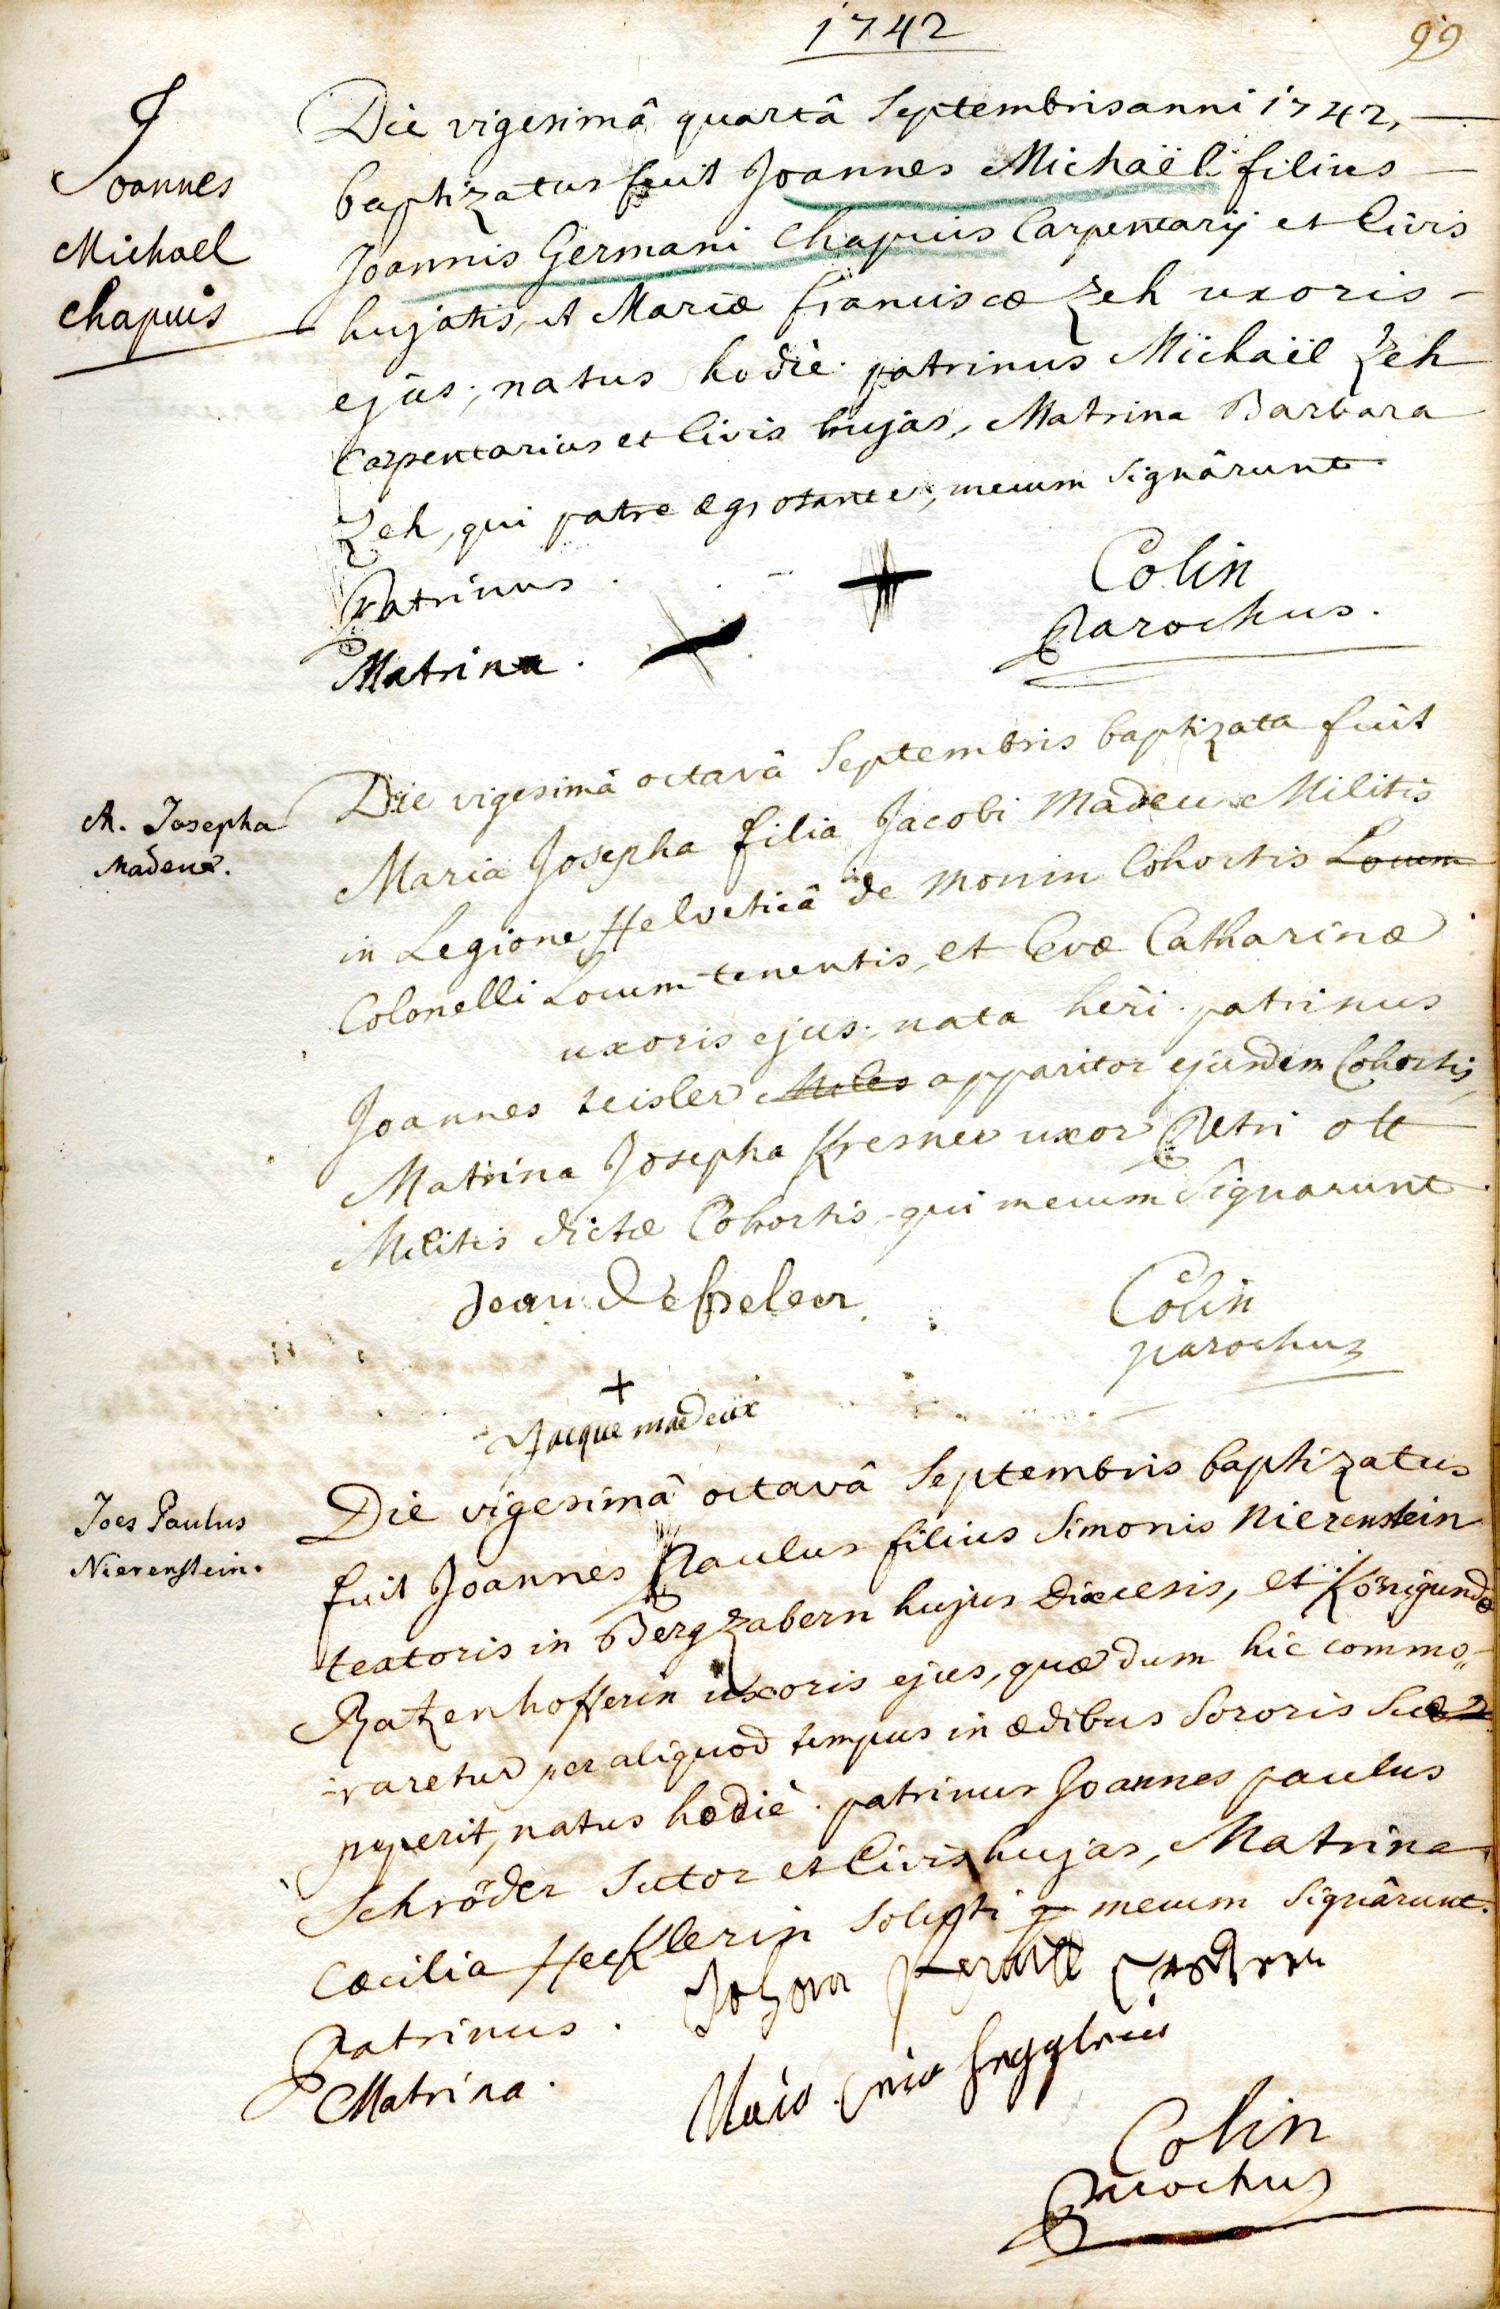 1742
99
Joannes
Michael
Chapuis
Die vigesimâ quartâ Septembris anni 1742,
baptizatus fuit Joannes Michaël filius
Joannis Germani Chapuis Carpentarij et Civis
hujatis, et Mariæ Franciscæ Zeh uxoris
ejus; natus hodie. patrinus Michaël Zeh
Carpentarius et Civis hujas, Matrina Barbara
Zeh, qui patre ægrotante, mecum signârunt
Patrinus . +
Matrina .
Colin
Parochus.
M. Josepha
Madeux.
Die vigesimâ octavâ Septembris baptizata fuit
Maria Josepha filia Jacobi Madeux Militis
in Legione Helveticâ de Monin Cohortis Locum
Colonelli Locum-tenentis, et Evæ Catharinæ
uxoris ejus; nata heri. patrinus
Joannes teisler Miles apparitor ejusdem Cohortis,
Matrina Josepha Kresner uxor Petri ott
Militis dictæ Cohortis qui mecum signarunt.
Jean
Colin
parochus
+
Jacque madeux
Joes Paulus
Nierenstein.
Die vigesimâ octavâ Septembris baptizatus
fuit Joannes Paulus filius Simonis Nierenstein
textoris in Bergzabern hujus Diæcesis, et Königundæ
Ratzenhofferin uxoris ejus, quæ dum hic commo-
raretur per aliquod tempus in ædibus Sororis suæ
peperit, natus hodiè. patrinus Joannes paulus
Schröder Sutor et Civis hujas, Matrina
Cæcilia Hecklerin soluti q mecum signârunt.
Patrinus . Johan
Matrina .
Colin
Parochus